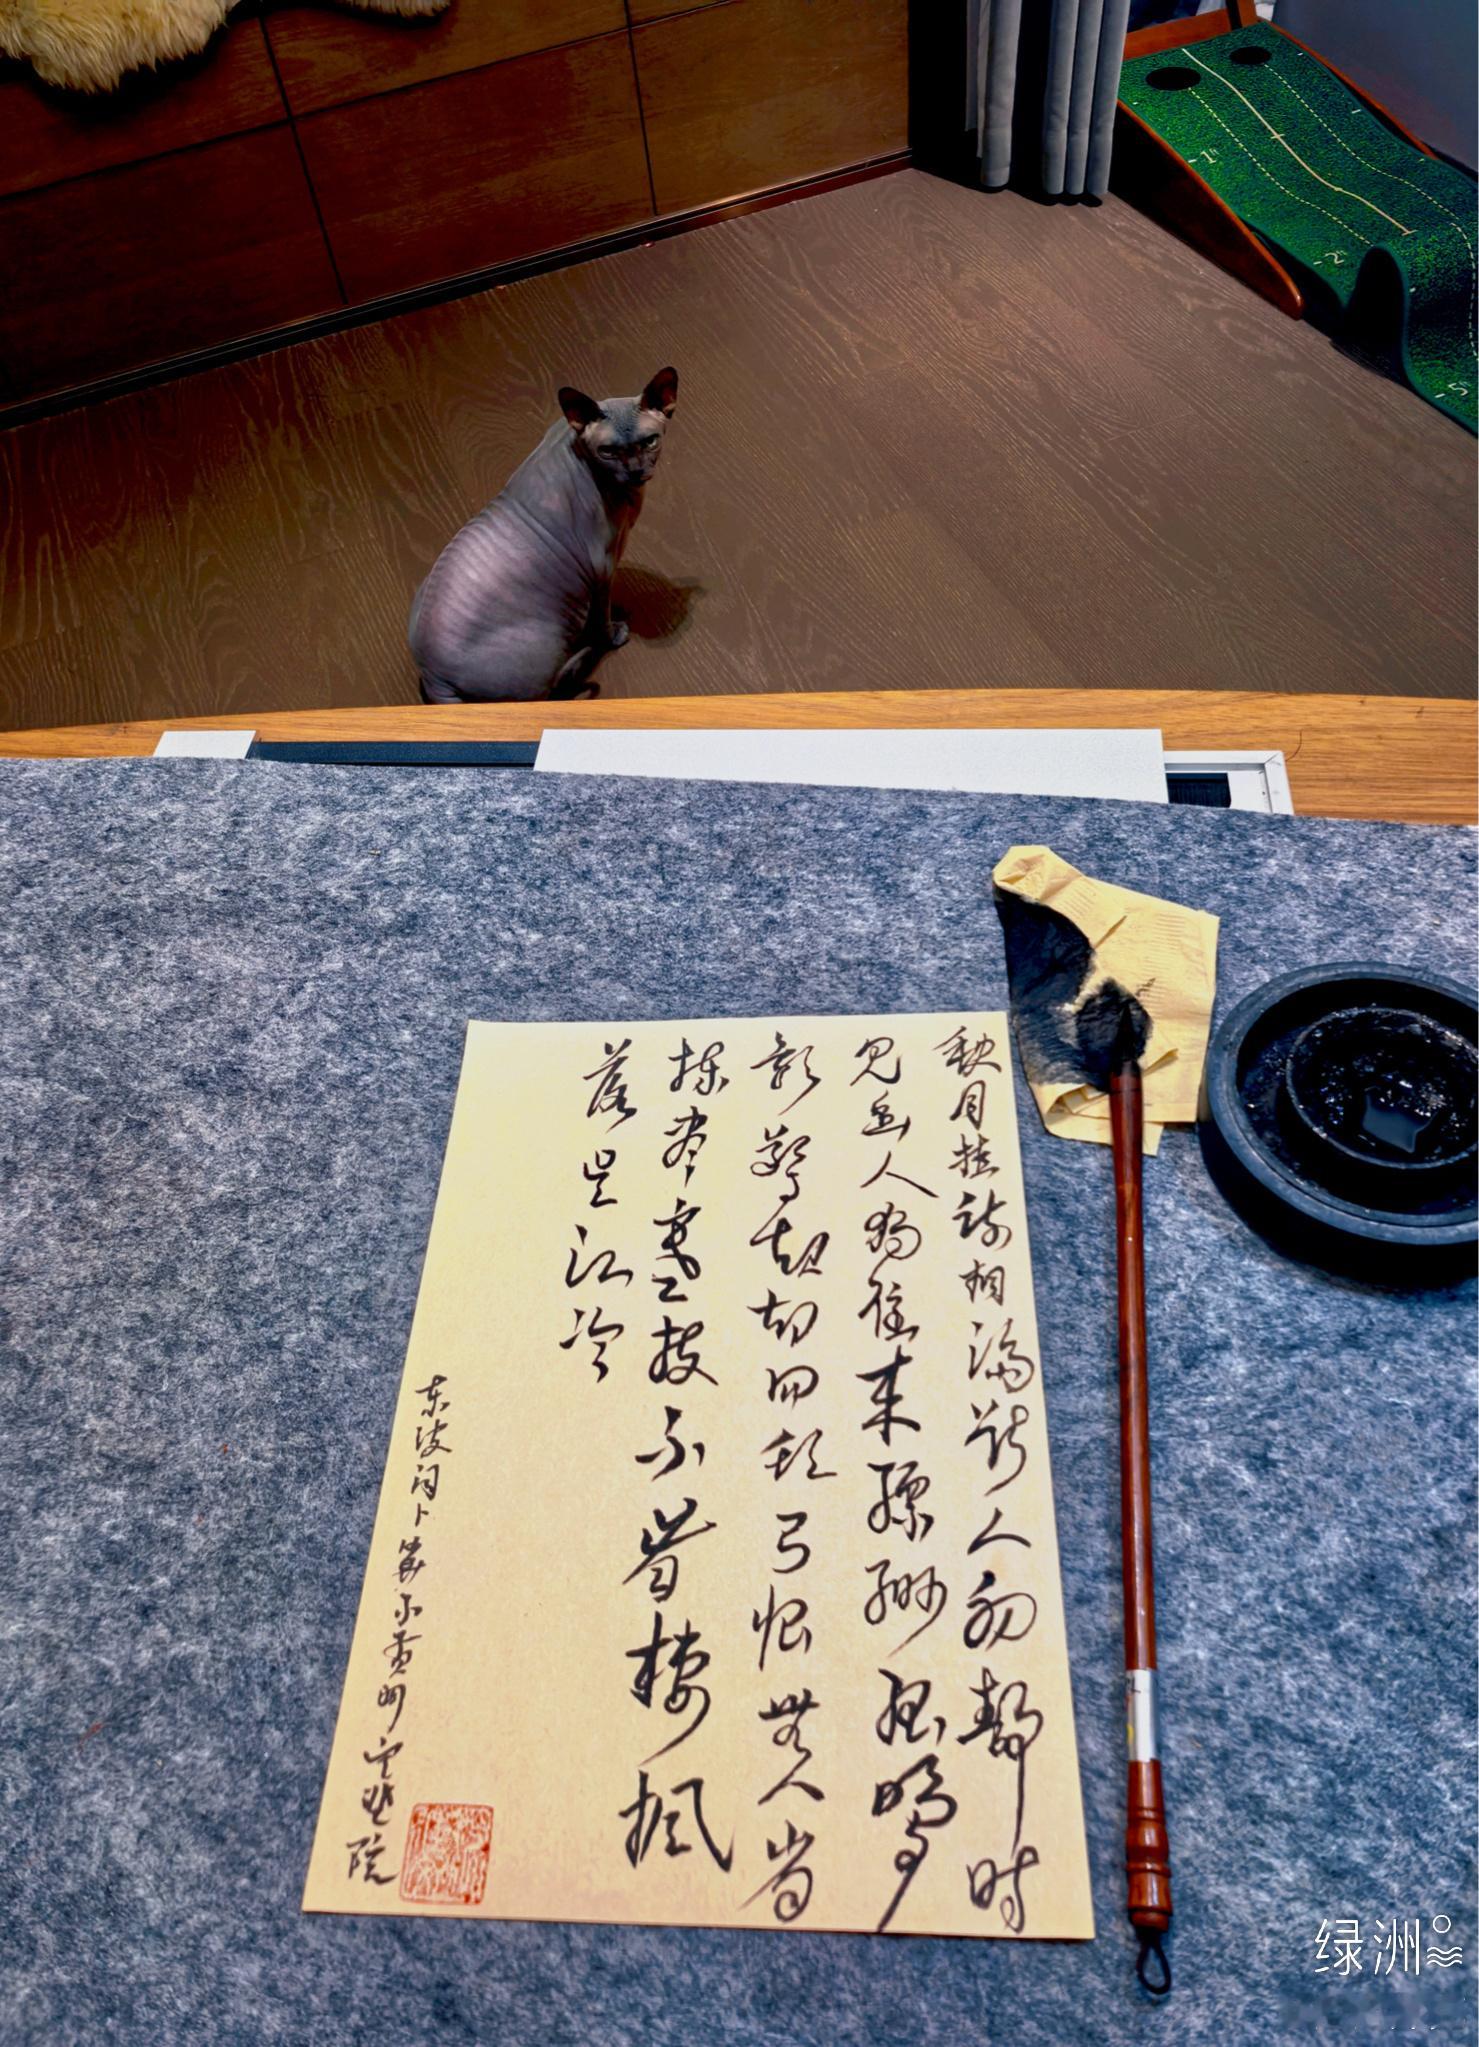 缺月挂疏桐漏断人初静时
见幽人独往来缥缈孤鸿
影惊起却回头有恨無人省
拣尽寒枝不肯栖枫
落吴江冷
东坡词卜算子黄州定慧院
绿洲